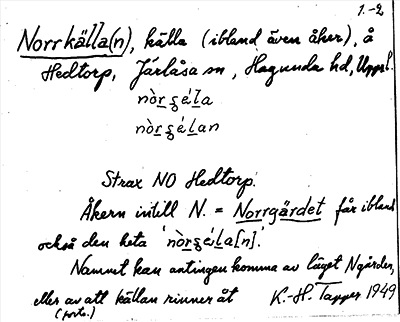 1.-2
Norrkälla(n), källa (ibland även åker), å
Hedtorp, Järlåsa sn, Hagunda hd, Uppl.
nòrʂéla
nòrʂélan
Strax NO Hedtorp.
Åkern intill N. = Norrgärdet får ibland
också den heta 'nòrʂéla[n].'
Namnet kan antingen komma av läget N gården,
eller av att källan rinner åt K.-H. Tapper 1949
(forts.)